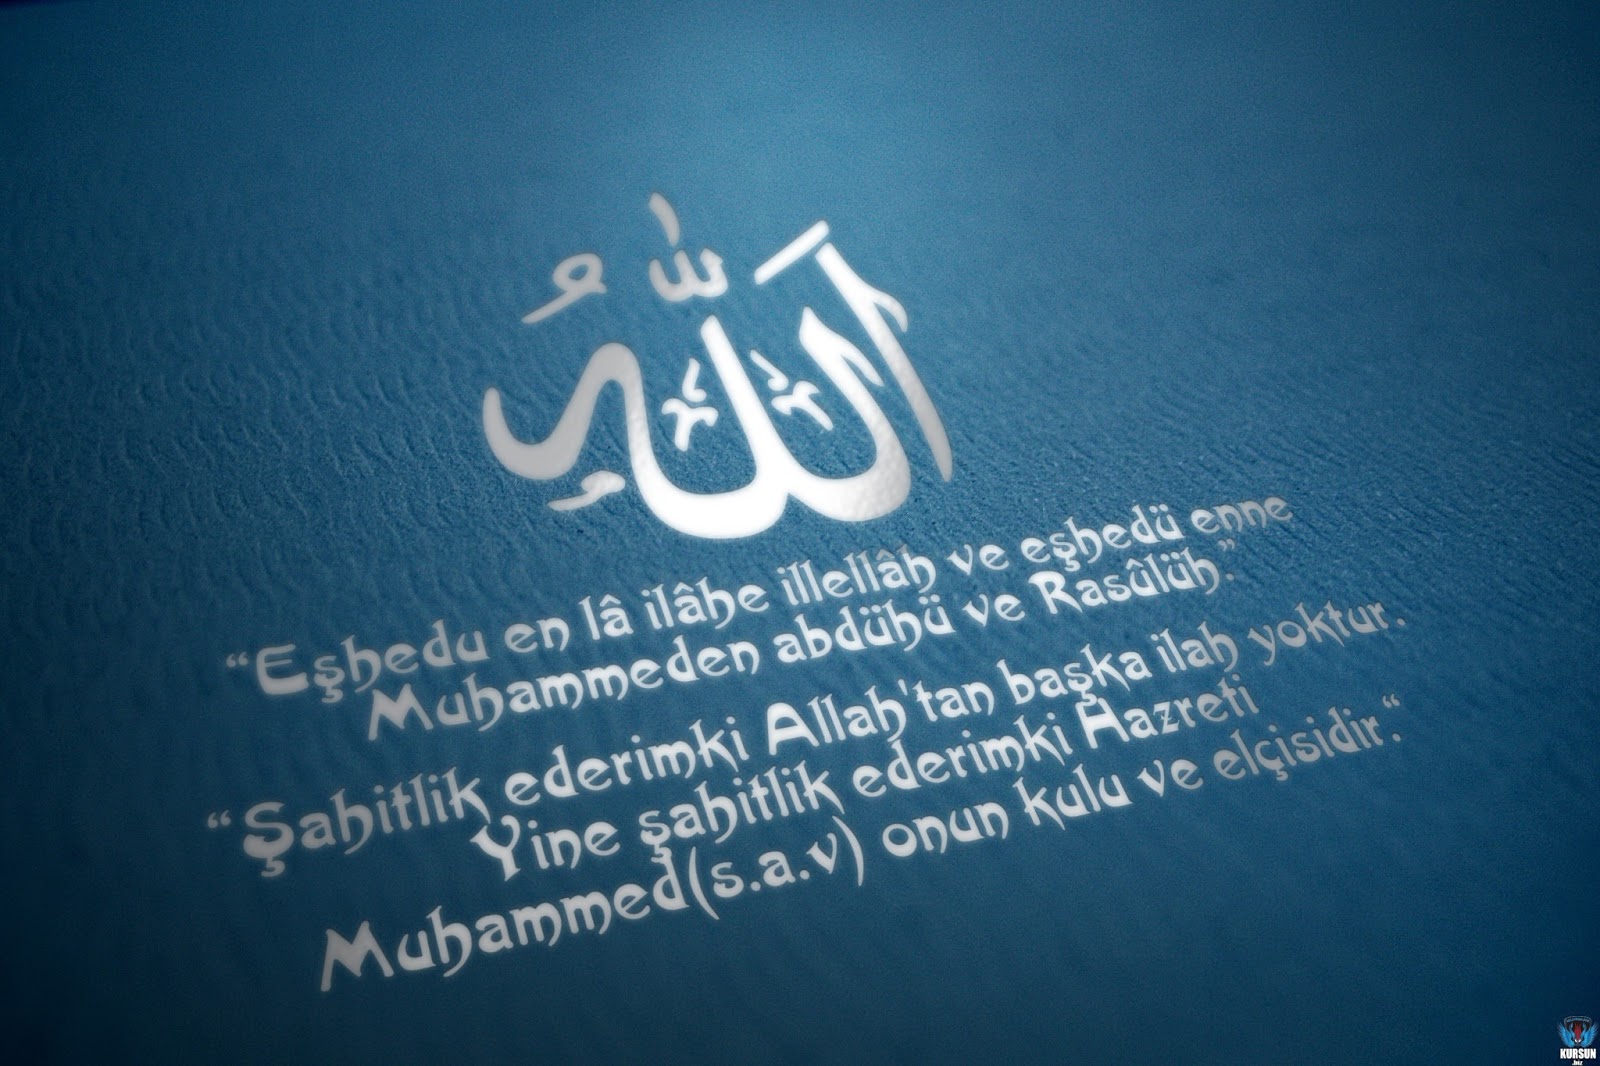 الله
“Eşhedu en lâ ilâhe illellâh ve eşhedü enne
Muhammeden abdühü ve Rasûlüh.”
“Şahitlik ederimki Allah'tan başka ilah yoktur.
Yine şahitlik ederimki Hazreti
Muhammed(s.a.v) onun kulu ve elçisidir.“
KURSUN
.biz